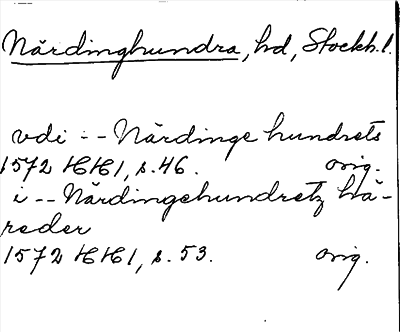 Närdinghundra, hd, Stockh.l.
vdi -- Närdinge hundrets
1572 HH 1, s. 46. orig.
i -- Närdingehundretz hä-
reder
1572 HH 1, s. 53. orig.